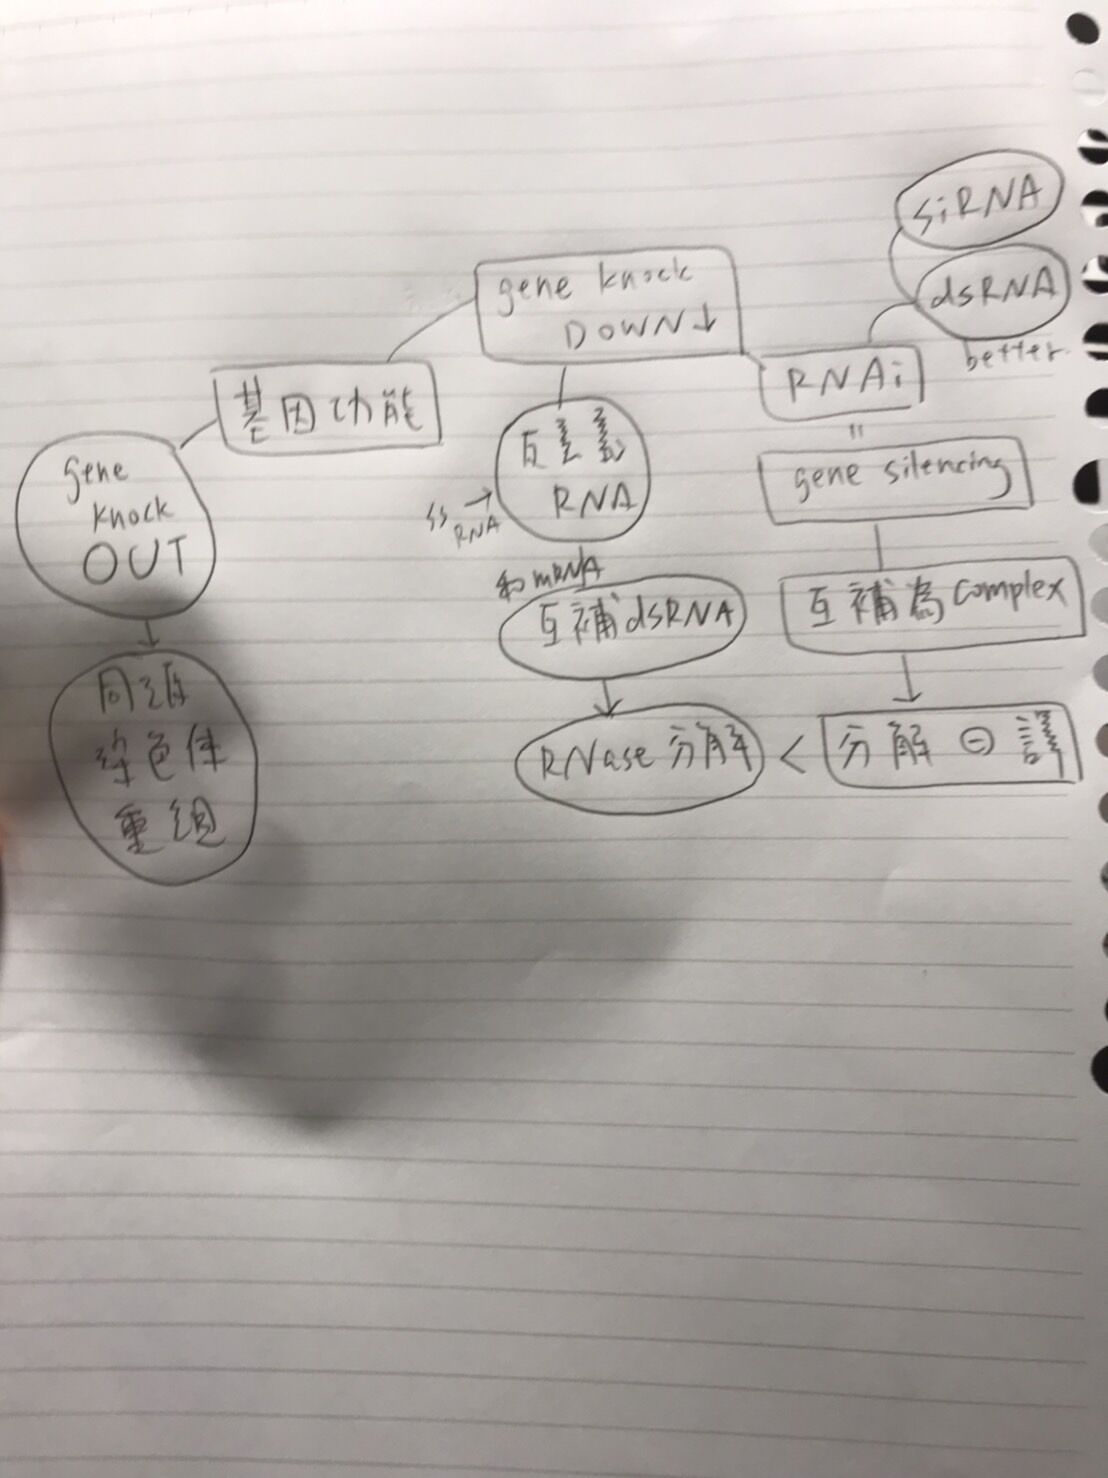 siRNA
dsRNA
better
gene knock
DOWN↓
RNAi
基因功能
gene
knock
OUT
反義
RNA
ss
RNA
→
=
gene silencing
和mRNA
互補dsRNA
互補為complex
同源
染色体
重組
RNase分解
<
分解⊖譯